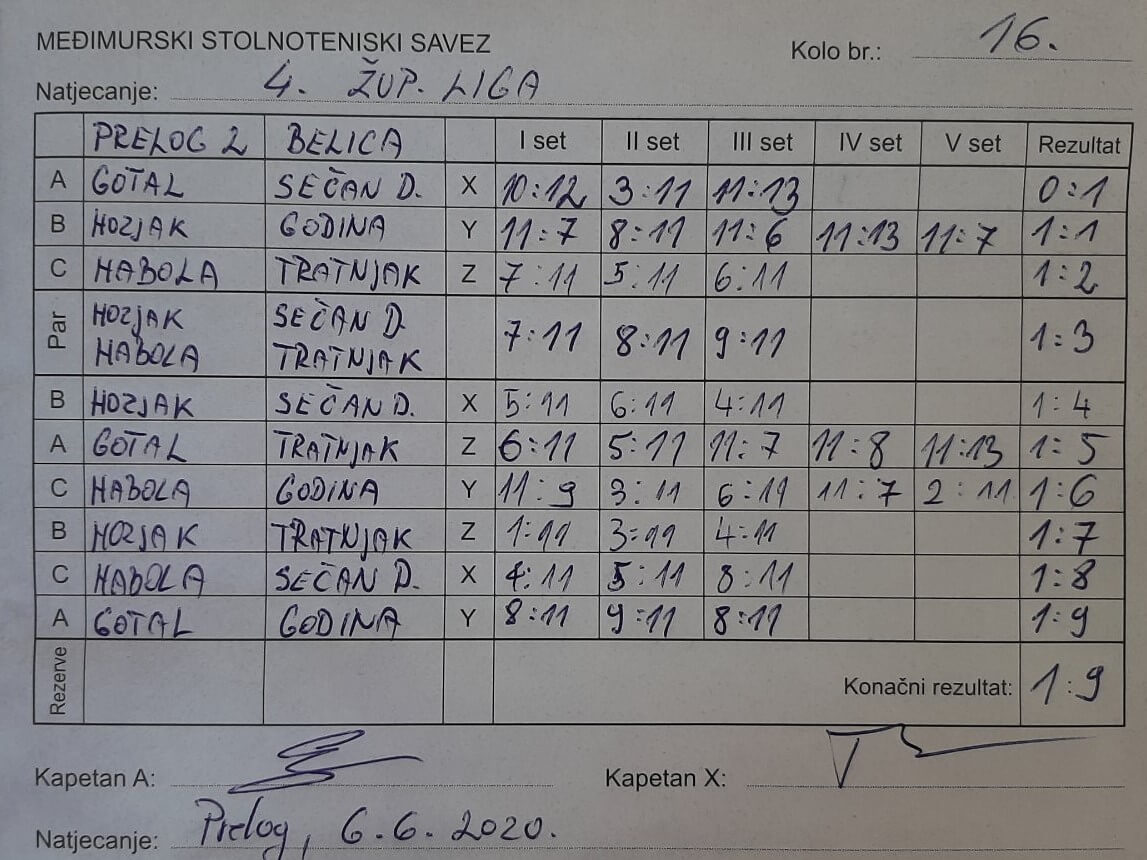 MEĐIMURSKI STOLNOTENISKI SAVEZ
Kolo br.: 16.
Natjecanje: 4. ŽUP. LIGA
PRELOG 2 BELICA I set II set III set IV set V set Rezultat
A GOTAL SEČAN D. X 10:12 3:11 11:13 0:1
B HOZJAK GODINA Y 11:7 8:11 11:6 11:13 11:7 1:1
C HABOLA TRATNJAK Z 7:11 5:11 6:11 1:2
Par HOZJAK SEČAN D. 7:11 8:11 9:11 1:3
HABOLA TRATNJAK
B HOZJAK SEČAN D. X 5:11 6:11 4:11 1:4
A GOTAL TRATNJAK Z 6:11 5:11 11:7 11:8 11:13 1:5
C HABOLA GODINA Y 11:9 3:11 6:11 11:7 2:11 1:6
B HOZJAK TRATNJAK Z 1:11 3:11 4:11 1:7
C HABOLA SEČAN D. X 4:11 5:11 8:11 1:8
A GOTAL GODINA Y 8:11 9:11 8:11 1:9
Rezerve Konačni rezultat: 1:9
Kapetan A: Kapetan X:
Natjecanje: Prelog, 6.6.2020.